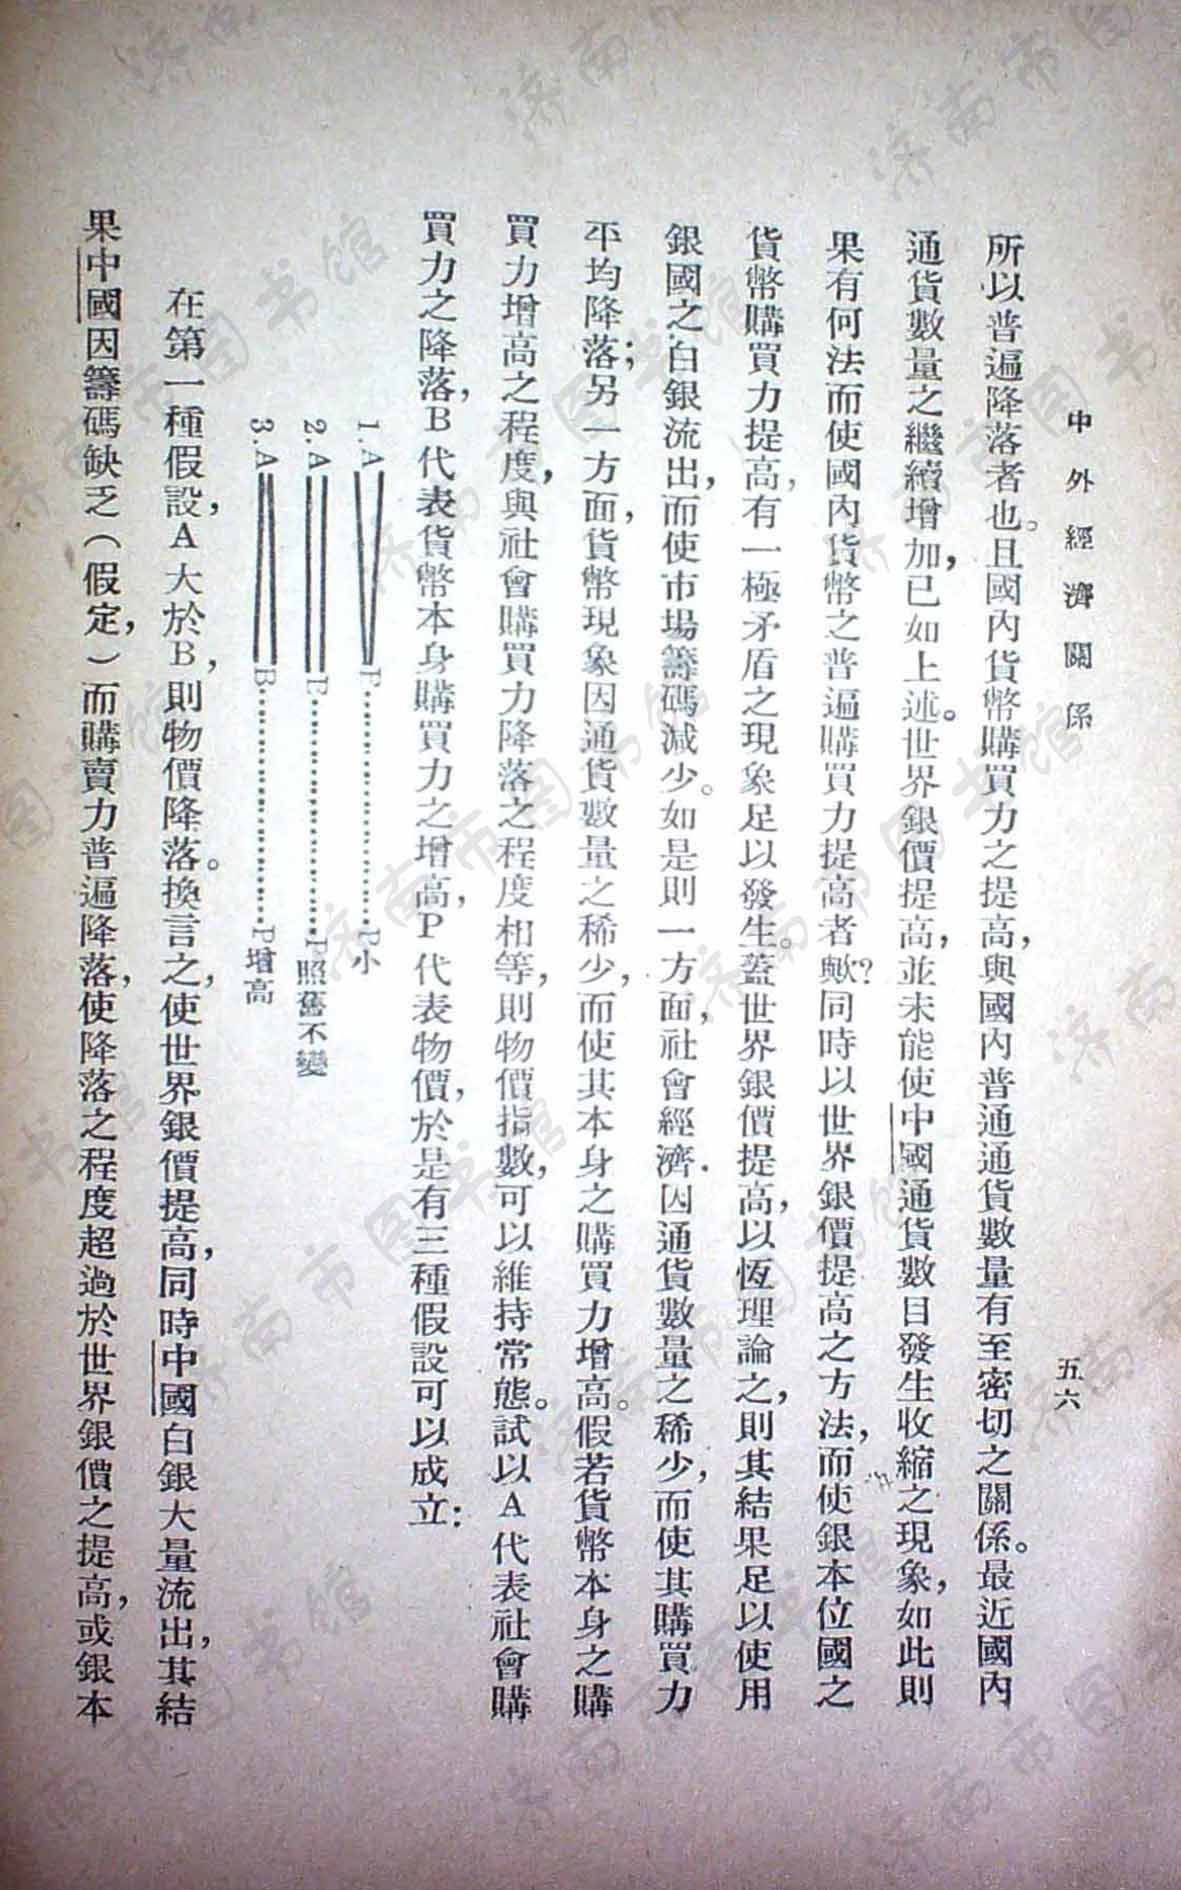 中外經濟關係
五六
所以普遍降落者也。且國內貨幣購買力之提高，與國內普通通貨數量有至密切之關係。最近國內
通貨數量之繼續增加，已如上述。世界銀價提高，並未能使中國通貨數目發生收縮之現象，如此則
果有何法而使國內貨幣之普遍購買力提高者歟？同時以世界銀價提高之方法，而使銀本位國之
貨幣購買力提高，有一極矛盾之現象足以發生。蓋世界銀價提高，以恆理論之，則其結果足以使用
銀國之白銀流出，而使市場籌碼減少。如是則一方面，社會經濟．因通貨數量之稀少，而使其購買力
平均降落；另一方面，貨幣現象因通貨數量之稀少，而使其本身之購買力增高。假若貨幣本身之購
買力增高之程度，與社會購買力降落之程度相等，則物價指數，可以維持常態。試以A代表社會購
買力之降落，B代表貨幣本身購買力之增高，P代表物價，於是有三種假設可以成立：
1.A B……………P小
2.A B……………P照舊不變
3.A B……………P增高
在第一種假設，A大於B，則物價降落。換言之，使世界銀價提高，同時中國白銀大量流出，其結
果中國因籌碼缺乏（假定，）而購賣力普遍降落，使降落之程度超過於世界銀價之提高，或銀本
济南市图书馆